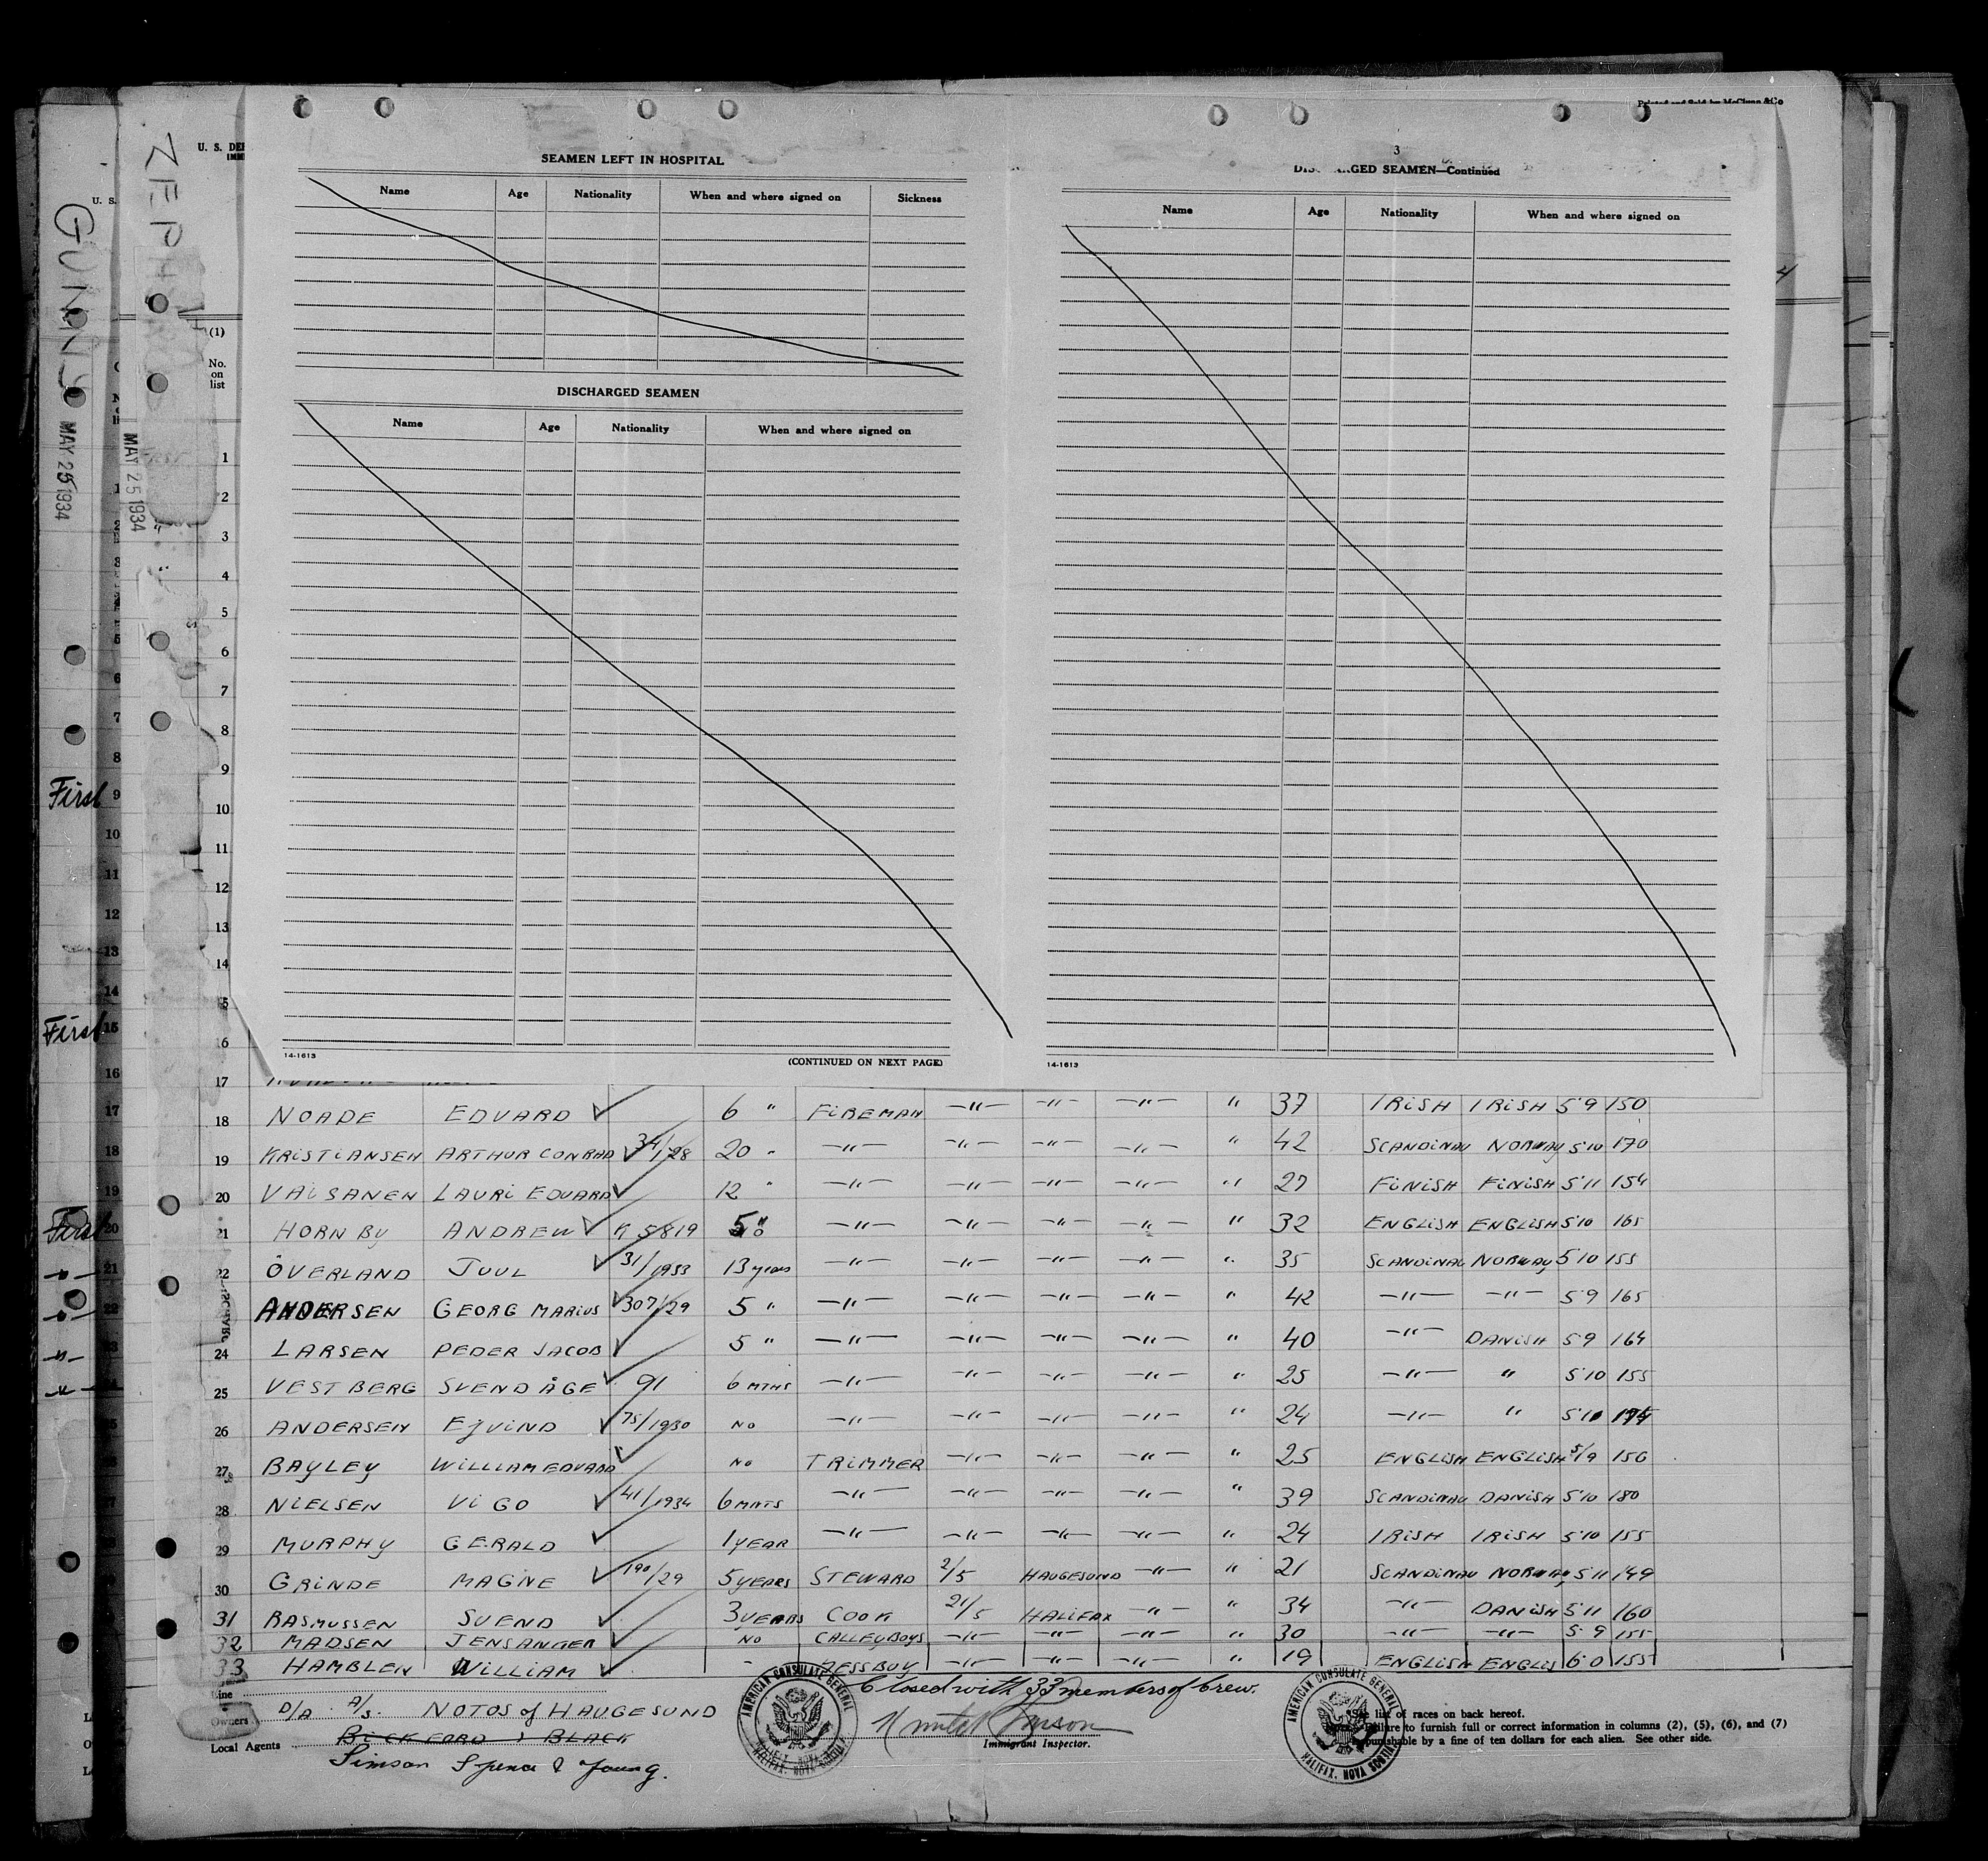 Printed and Sold by McClung & Co
U. S.
U. S. DEP
ZEPHYROS
GUNNY
MAY 25 1934
MAY 25 1934
SEAMEN LEFT IN HOSPITAL
Name Age Nationality When and where signed on Sickness
DISCHARGED SEAMEN
Name Age Nationality When and where signed on
14-1613 (CONTINUED ON NEXT PAGE)
3
DISCHARGED SEAMEN—Continued
Name Age Nationality When and where signed on
14-1613
(1)
No. on list
1
2
3
4
5
6
7
8
9
10
11
12
13
14
15
16
17
First 9
First 15
First 20
18 NOADE EDVARD ✓ 6 " FIREMAN —"— —"— —"— " 37 IRISH IRISH 5'9 150
19 KRISTIANSEN ARTHUR CONRAD ✓ 34/28 20 " —"— —"— —"— —"— " 42 SCANDINAV NORWAY 5'10 170
20 VAISANEN LAURI EDUARD ✓ 12 " —"— —"— —"— —"— " 27 FINISH FINISH 5'11 154
21 HORNBY ANDREW ✓ R 5819 5 " —"— —"— —"— —"— " 32 ENGLISH ENGLISH 5'10 165
22 ÖVERLAND JUUL ✓ 31/1933 13 years —"— —"— —"— —"— " 35 SCANDINAV NORWAY 5'10 155
ANDERSEN GEORG MARIUS ✓ 307/29 5 " —"— —"— —"— —"— " 42 —"— —"— 5'9 165
24 LARSEN PEDER JACOB ✓ 5 " —"— —"— —"— —"— " 40 —"— DANISH 5'9 164
25 VESTBERG SVEND ÅGE ✓ 91 6 MTHS —"— —"— —"— —"— " 25 —"— " 5'10 155
26 ANDERSEN EJVIND ✓ 75/1930 NO —"— —"— —"— —"— " 24 —"— " 5'10 174
27 BAYLEY WILLIAM EDVARD ✓ NO TRIMMER —"— —"— —"— " 25 ENGLISH ENGLISH 5/9 156
28 NIELSEN VIGO ✓ 41/1934 6 MNTS —"— —"— —"— —"— " 39 SCANDINAV DANISH 5'10 180
29 MURPHY GERALD ✓ 1 YEAR —"— —"— —"— —"— " 24 IRISH IRISH 5'10 155
30 GRINDE MAGNE ✓ 190/29 5 YEARS STEWARD 2/5 HAUGESUND —"— " 21 SCANDINAV NORWAY 5'11 149
31 RASMUSSEN SVEND ✓ 3 YEARS COOK 21/5 HALIFAX —"— " 34 —"— DANISH 5'11 160
32 MADSEN JENS ANGER ✓ NO GALLEYBOYS —"— —"— —"— " 30 —"— —"— 5'9 155
33 HAMBLEN WILLIAM ✓ - MESSBOY —"— —"— —"— " 19 ENGLISH ENGLIS 6'0 155
Line
Closed with 33 members of Crew.
Owners D/A A/S. NOTOS of HAUGESUND
Local Agents BICKFORD & BLACK
Simson Spence & Young.
Immigrant Inspector.
AMERICAN CONSULATE GENERAL
HALIFAX, NOVA SCOTIA
AMERICAN CONSULATE GENERAL
HALIFAX, NOVA SCOTIA
See list of races on back hereof.
Failure to furnish full or correct information in columns (2), (5), (6), and (7)
punishable by a fine of ten dollars for each alien. See other side.